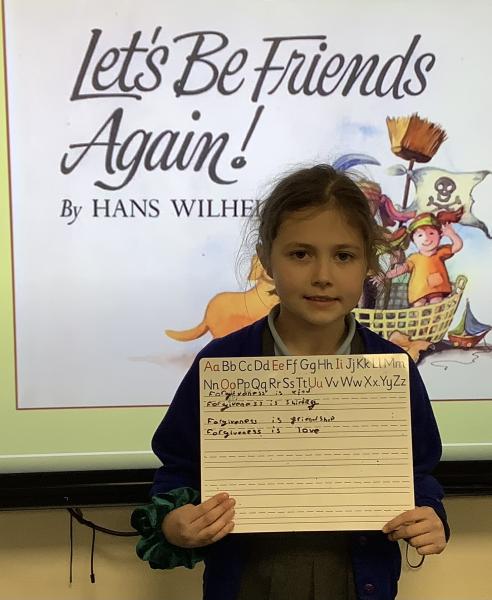 Let's Be Friends
Again!
By HANS WILHEL
Aa Bb Cc Dd Ee Ff Gg Hh Ii Jj Kk Ll Mm
Nn Oo Pp Qq Rr Ss Tt Uu Vv Ww Xx Yy Zz
Forgiveness is kind
Forgiveness is
Forgiveness is friendship
Forgiveness is love